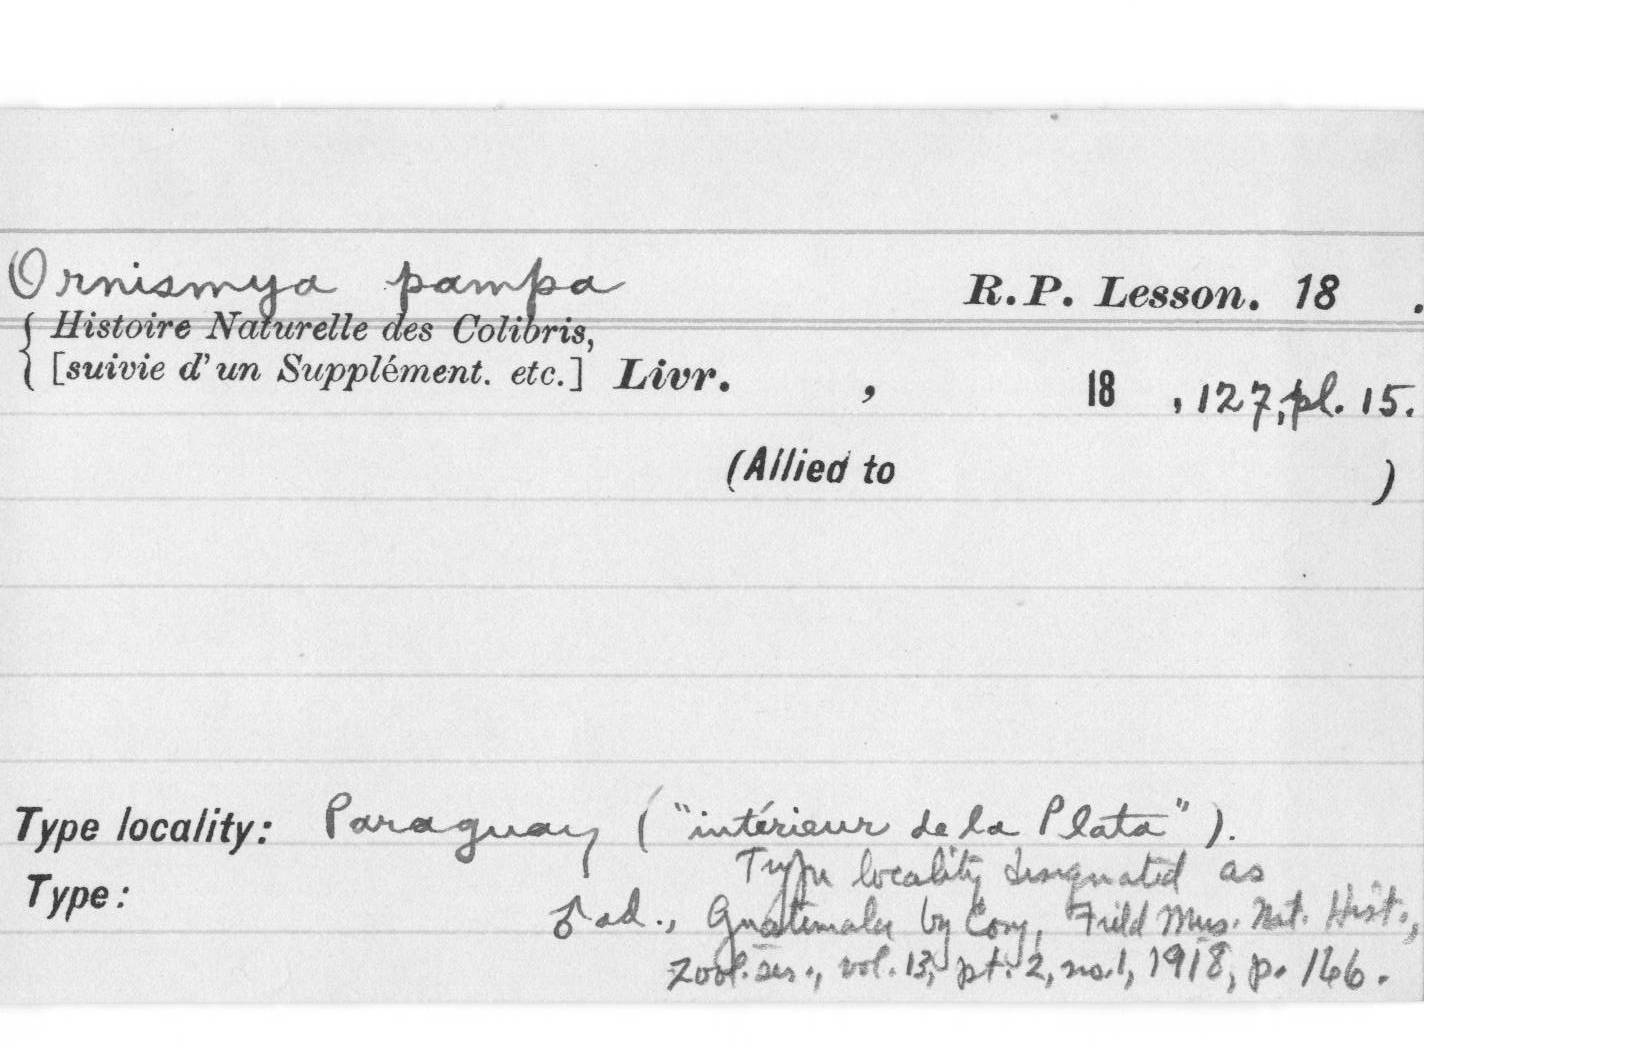 Ornismya pampa R.P. Lesson. 18 .
Histoire Naturelle des Colibris,
[suivie d'un Supplément. etc.] Livr. , 18 , 127, pl. 15.
(Allied to )
Type locality: Paraguay ("intérieur de la Plata").
Type locality designated as
Type: ♂ ad., Guatemala by Cory, Field Mus. Nat. Hist.,
Zool. ser., vol. 13, pt. 2, no. 1, 1918, p. 166.